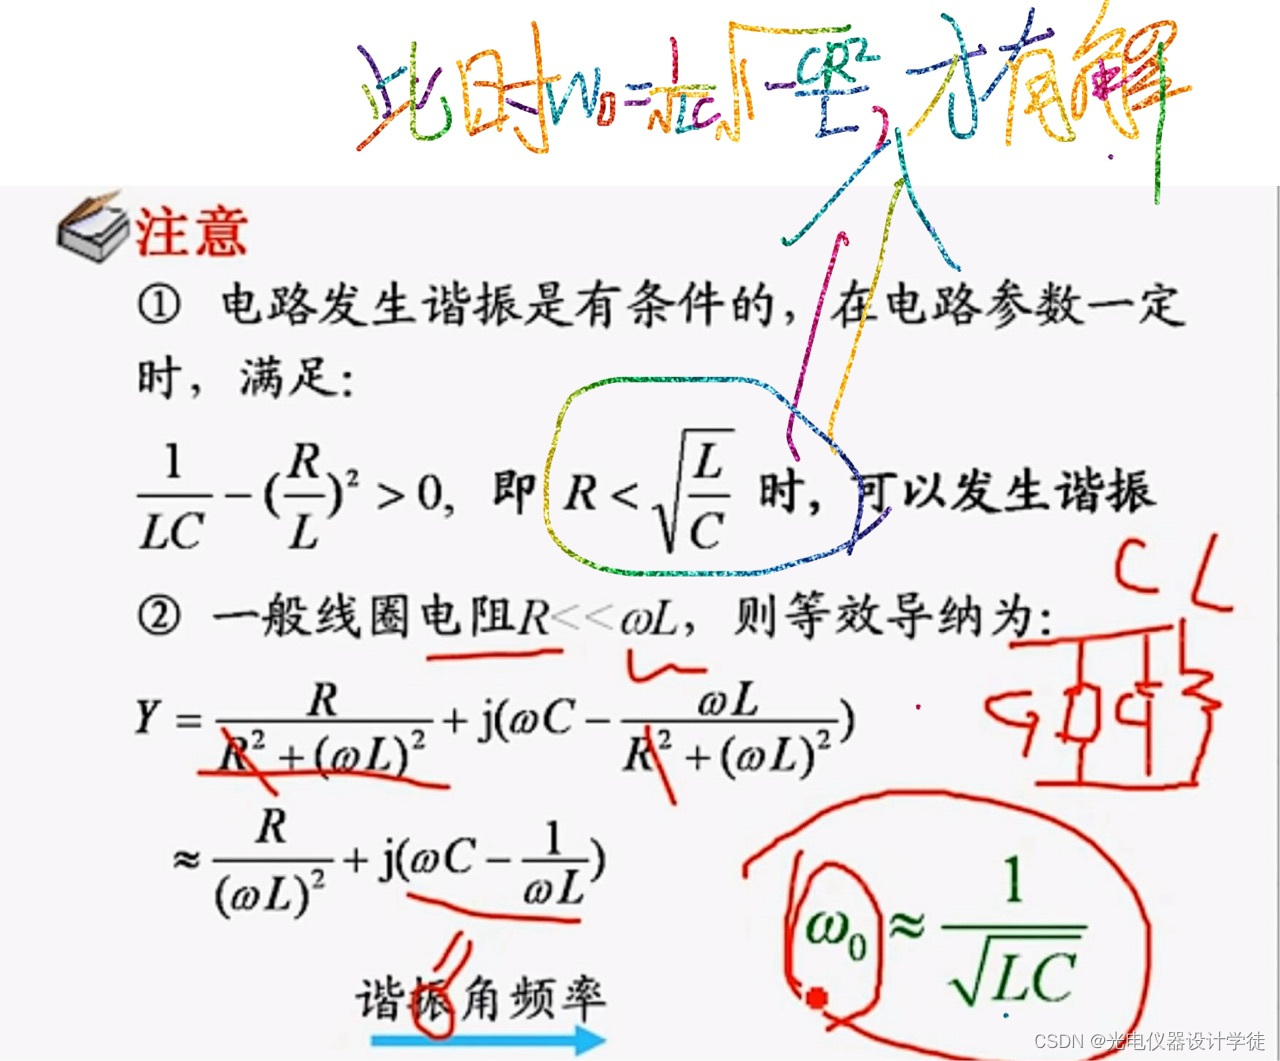 此时W₀=1/√LC √1-CR²/L，才有解
注意
① 电路发生谐振是有条件的，在电路参数一定
时，满足：
1/LC-(R/L)²>0，即 R<√(L/C) 时，可以发生谐振
② 一般线圈电阻R<<ωL，则等效导纳为：
C L
G
Y=R/(R²+(ωL)²)+j(ωC-ωL/(R²+(ωL)²))
≈R/(ωL)²+j(ωC-1/ωL)
谐振角频率
ω₀≈1/√LC
CSDN @光电仪器设计学徒